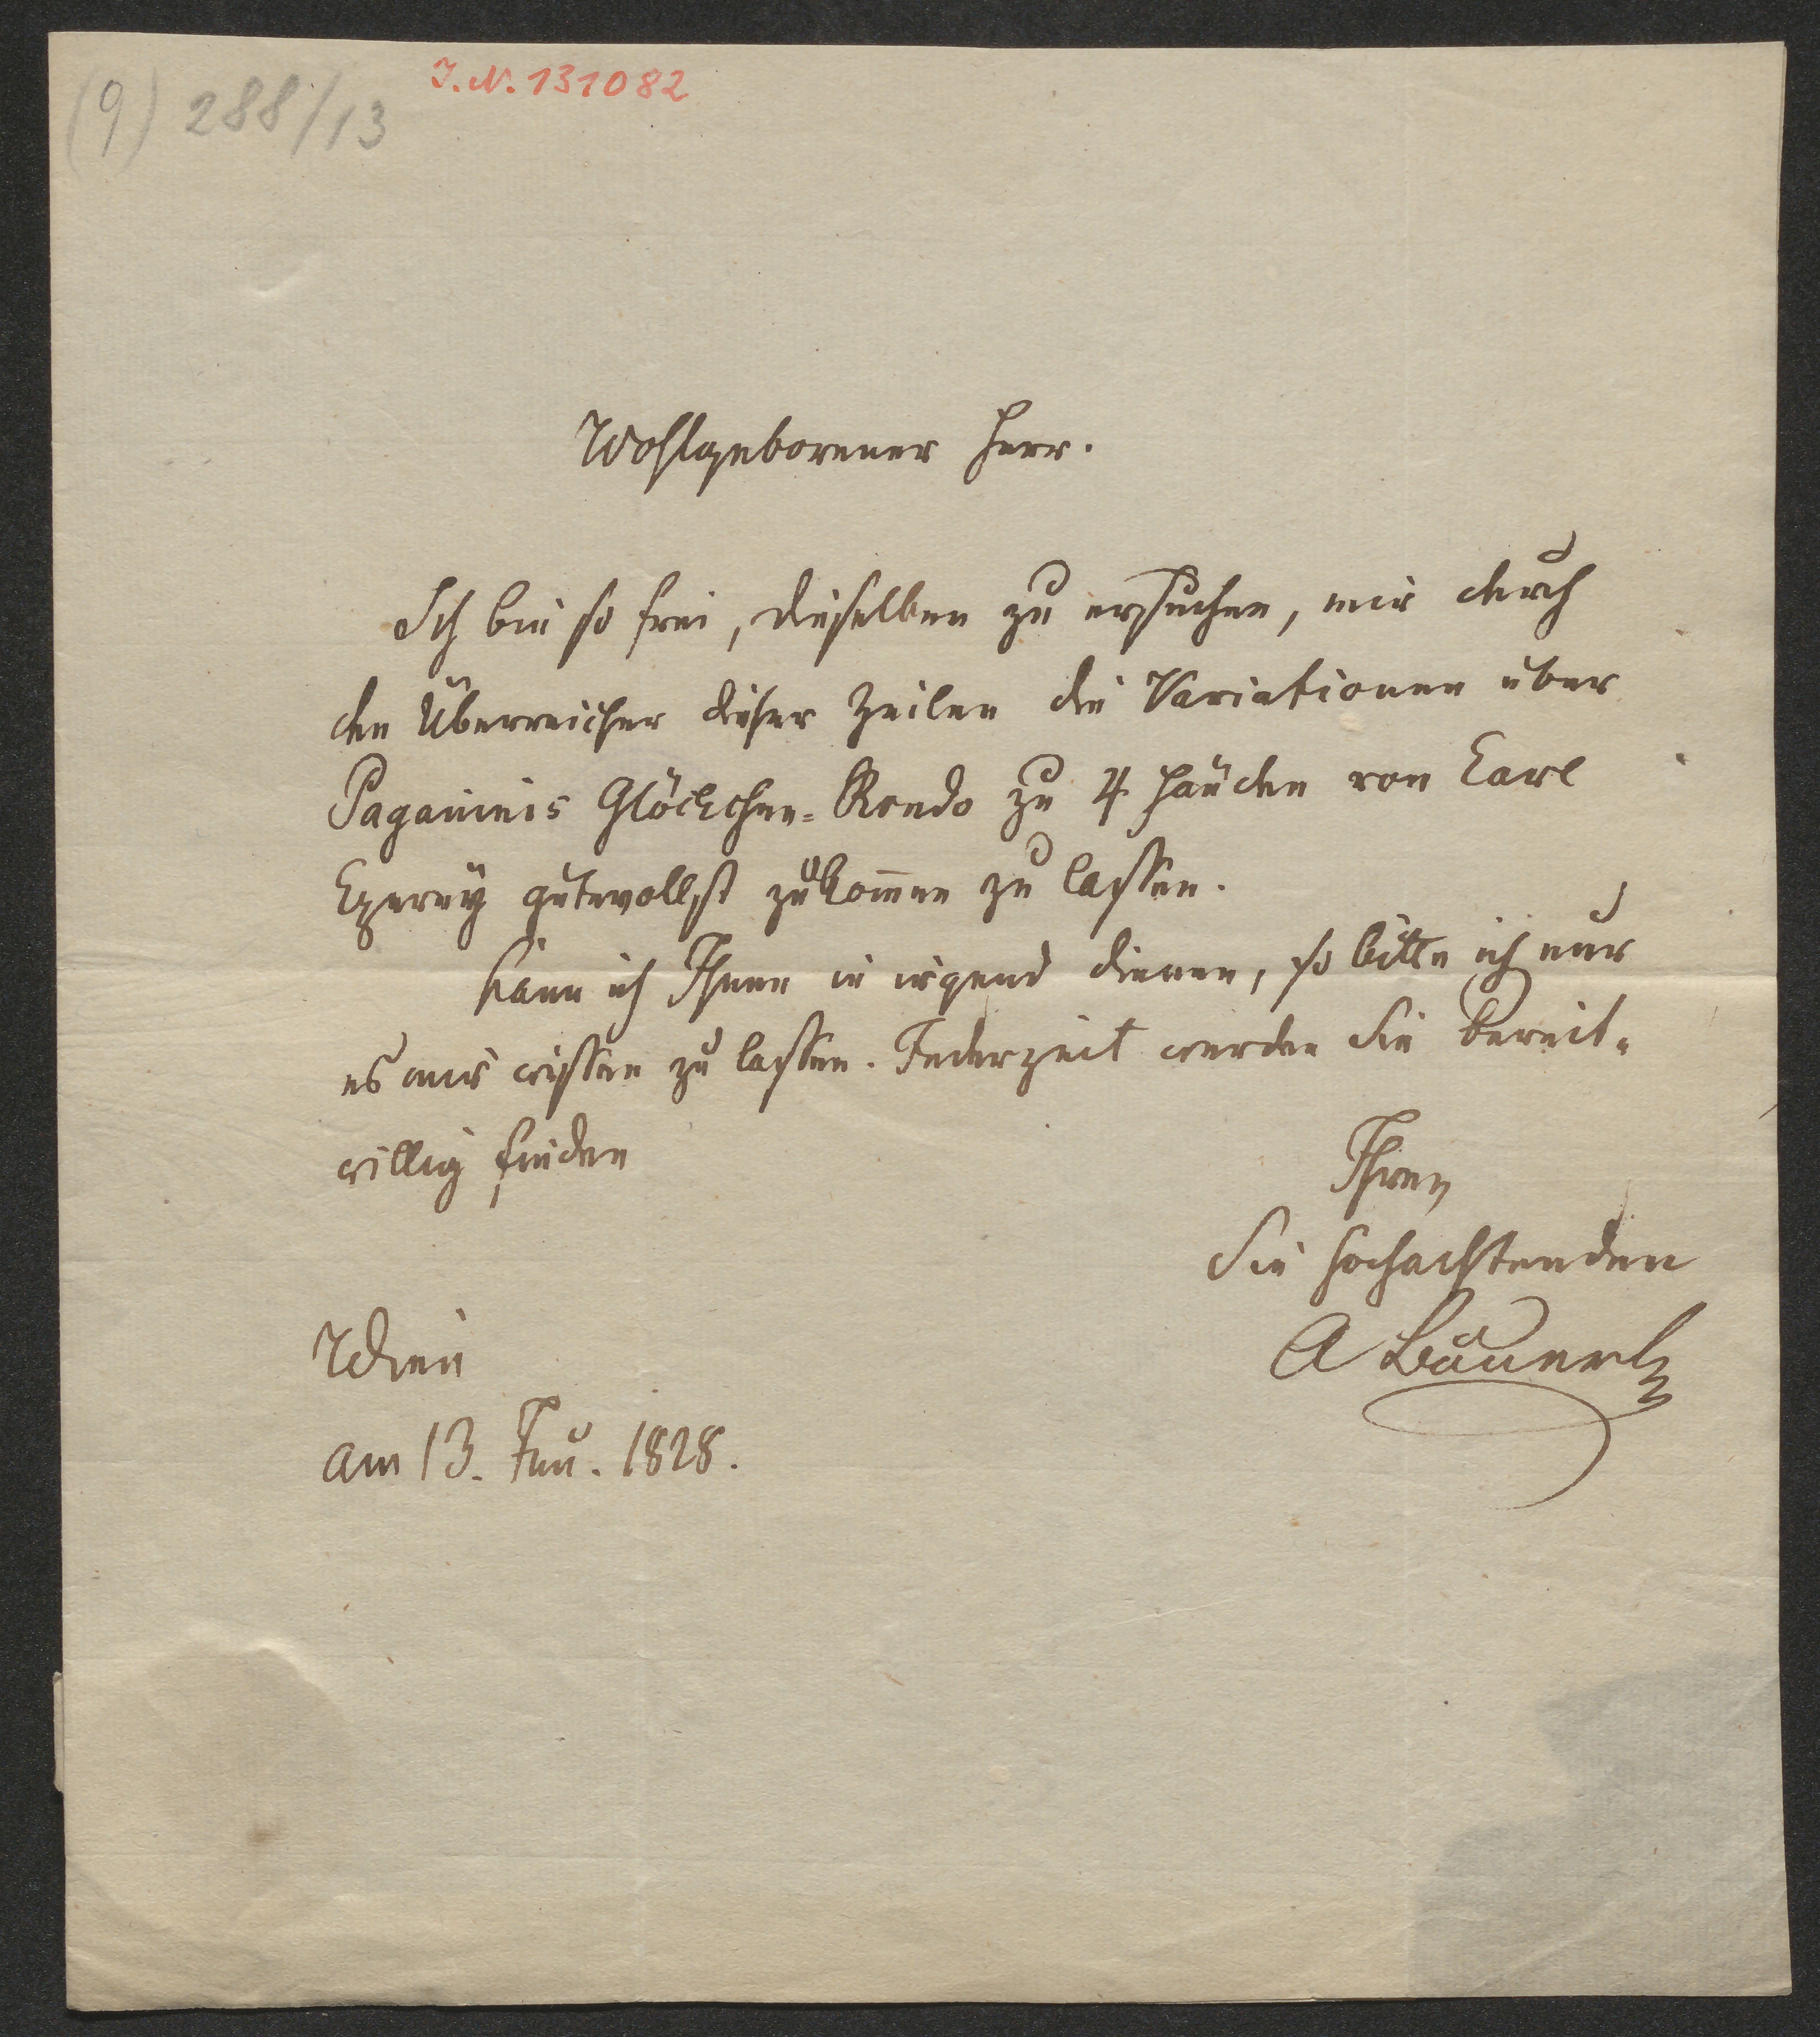 (9) 288/13
I.N. 131082
Wohlgeborener Herr.
Ich bin so frei, dieselben zu ersuchen, mir durch
den Überreicher dieser Zeilen die Variationen über
Paganinis Glöckchen=Rondo zu 4 Händen von Carl
Czerny gütevollst zukom̅en zu lassen.
Kann ich Ihnen in irgend dienen, so bitte ich nur
es mir wissen zu lassen. Jederzeit werden Sie bereit=
willig finden
Ihren
Sie hochachtenden
A Bäuerle
Wien
am 13. Jun. 1828.